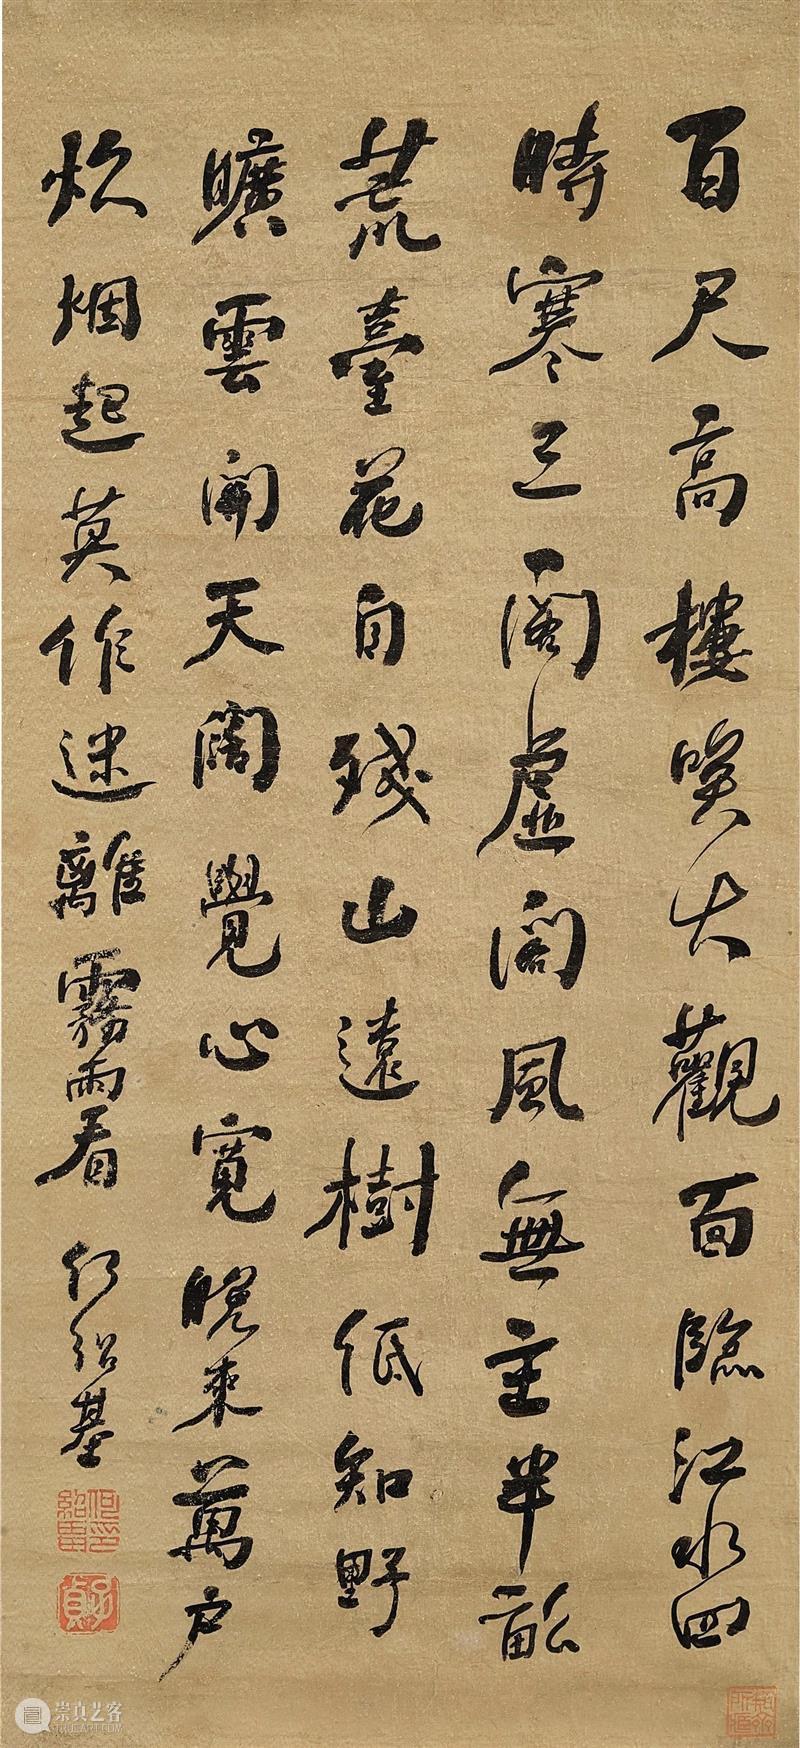 百尺高樓喚大觀面臨江水四
時寒三閣虛風無主半畝
荒臺花自殘山遠樹低知野
曠雲開天闊覺心寬晚來萬户
炊烟起莫作迷離霧雨看 何紹基
何紹基印
子貞
崇真艺客
TRUEART.COM